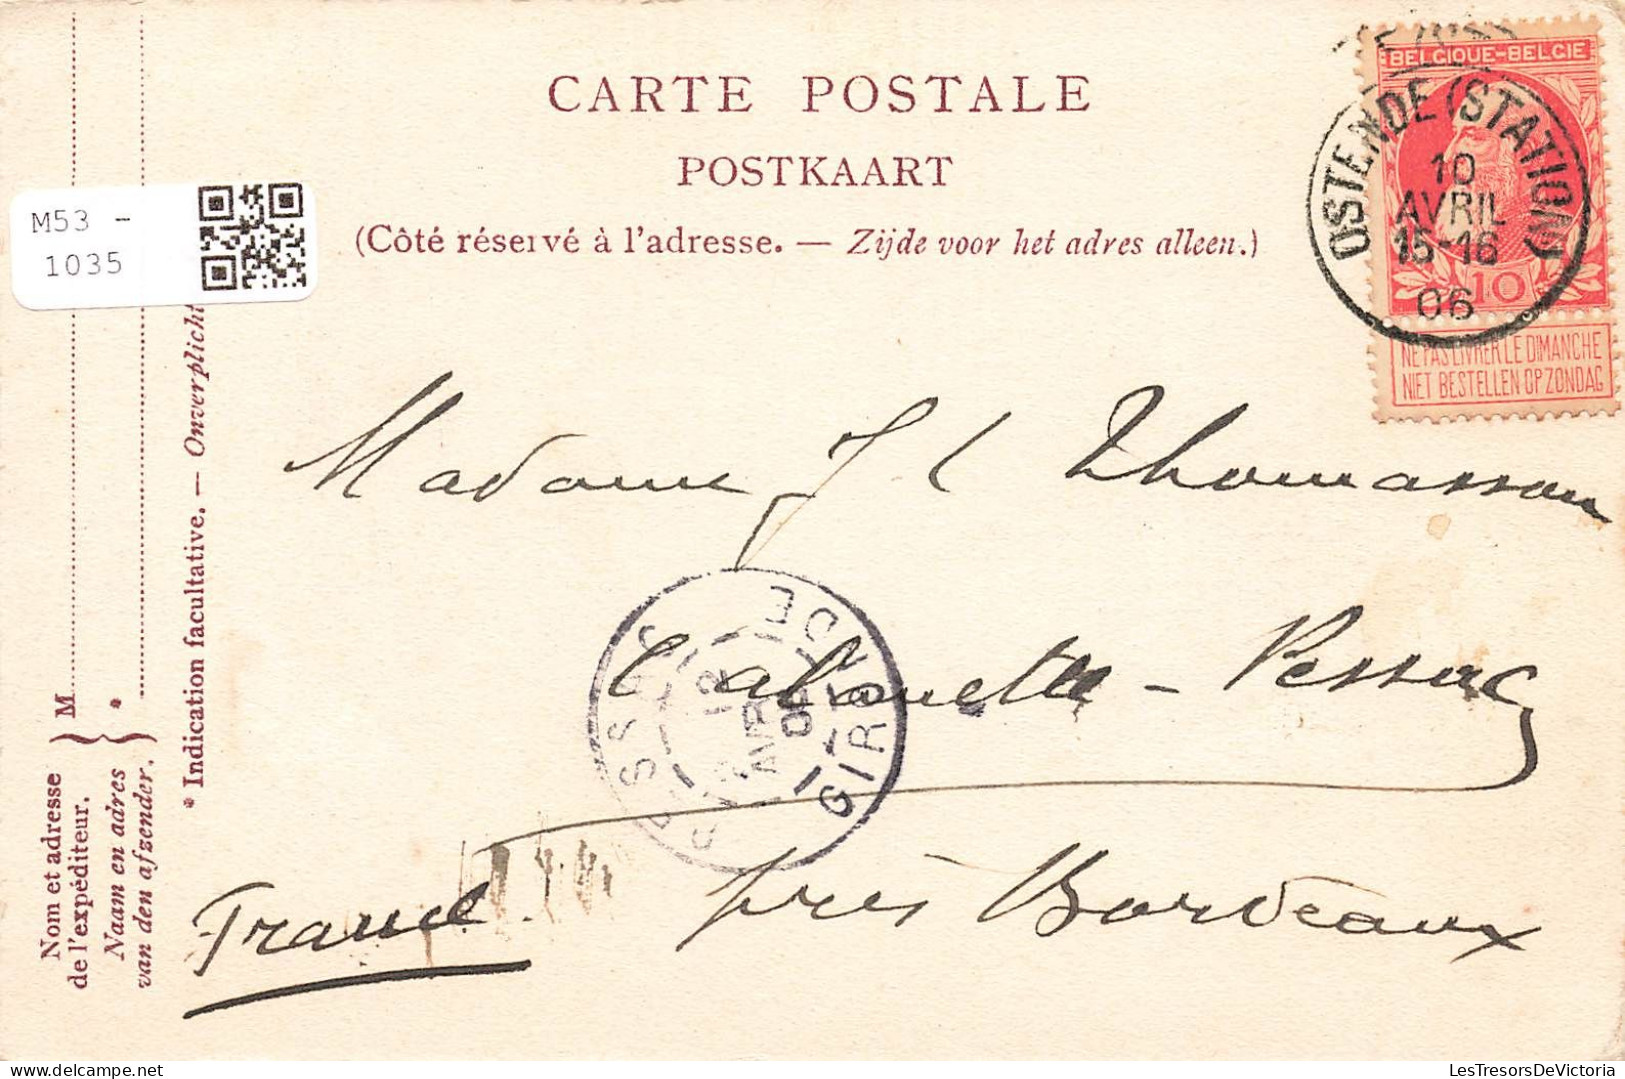 CARTE POSTALE
POSTKAART
(Côté réservé à l'adresse. — Zijde voor het adres alleen.)
M53 -
1035
BELGIQUE-BELGIE
10
NE PAS LIVRER LE DIMANCHE
NIET BESTELLEN OP ZONDAG
OSTENDE (STATION)
10
AVRIL
15-16
06
Madame J L Thomasson
L'alouette - Pessac
près Bordeaux
France
PESSAC
GIRONDE
12
AVRIL
06
Nom et adresse
de l'expéditeur.
Naam en adres
van den afzender.
M
*
* Indication facultative. — Onverplicht
LesTresorsDeVictoria